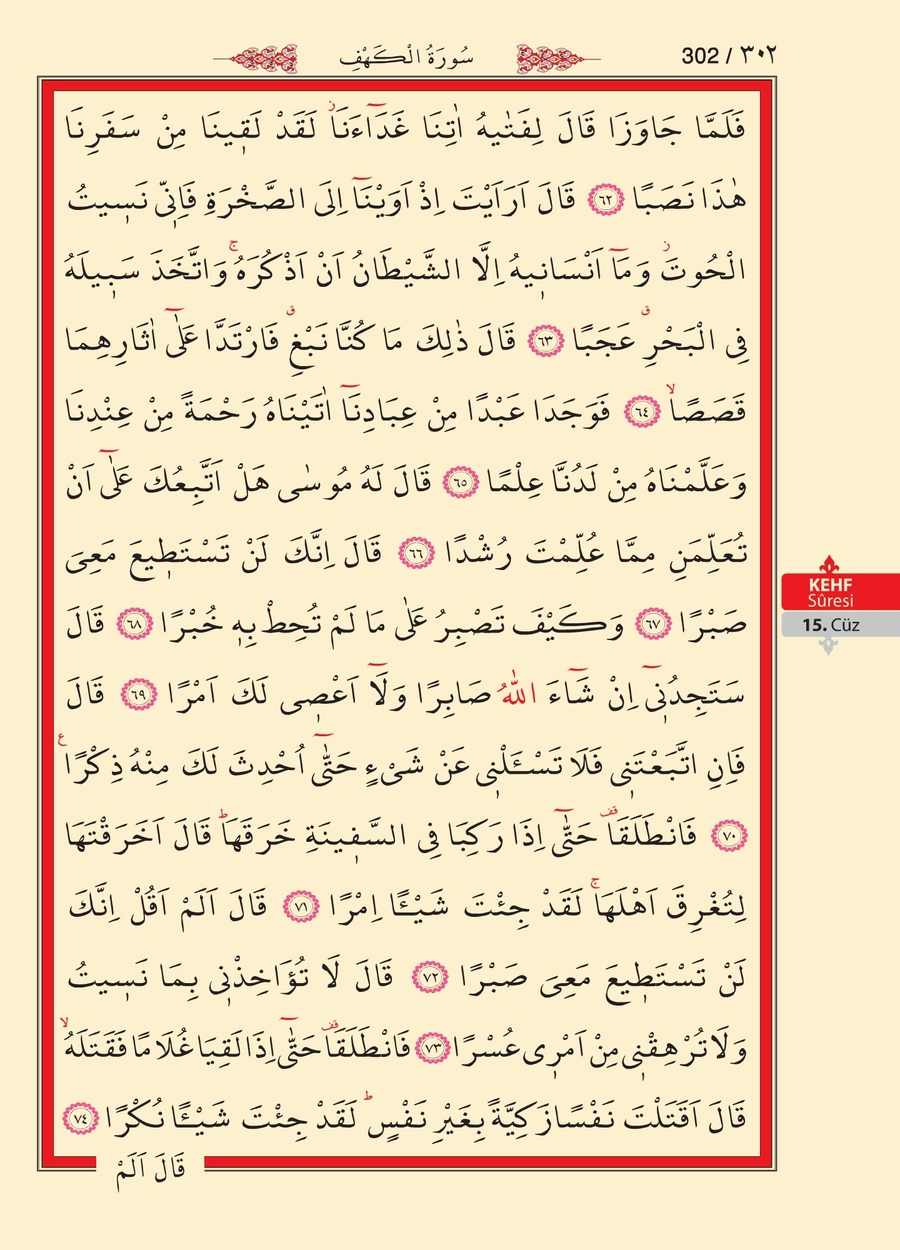 302 / ٣٠٢
سُورَةُ الْكَهْفِ
فَلَمَّا جَاوَزَا قَالَ لِفَتٰيهُ اٰتِنَا غَدَٓاءَنَاۘ لَقَدْ لَقٖينَا مِنْ سَفَرِنَا
هٰذَا نَصَبًا ﴿٦٢﴾ قَالَ اَرَاَيْتَ اِذْ اَوَيْنَٓا اِلَى الصَّخْرَةِ فَاِنّٖى نَسٖيتُ
الْحُوتَؗ وَمَٓا اَنْسَانٖيهُ اِلَّا الشَّيْطَانُ اَنْ اَذْكُرَهُۚ وَاتَّخَذَ سَبٖيلَهُ
فِى الْبَحْرِࣗ عَجَبًا ﴿٦٣﴾ قَالَ ذٰلِكَ مَا كُنَّا نَبْغِࣗ فَارْتَدَّا عَلٰٓى اٰثَارِهِمَا
قَصَصًاۙ ﴿٦٤﴾ فَوَجَدَا عَبْدًا مِنْ عِبَادِنَٓا اٰتَيْنَاهُ رَحْمَةً مِنْ عِنْدِنَا
وَعَلَّمْنَاهُ مِنْ لَدُنَّا عِلْمًا ﴿٦٥﴾ قَالَ لَهُ مُوسٰى هَلْ اَتَّبِعُكَ عَلٰٓى اَنْ
تُعَلِّمَنِ مِمَّا عُلِّمْتَ رُشْدًا ﴿٦٦﴾ قَالَ اِنَّكَ لَنْ تَسْتَطٖيعَ مَعِىَ
صَبْرًا ﴿٦٧﴾ وَكَيْفَ تَصْبِرُ عَلٰى مَا لَمْ تُحِطْ بِهٖ خُبْرًا ﴿٦٨﴾ قَالَ
سَتَجِدُنٖٓى اِنْ شَٓاءَ اللّٰهُ صَابِرًا وَلَٓا اَعْصٖى لَكَ اَمْرًا ﴿٦٩﴾ قَالَ
فَاِنِ اتَّبَعْتَنٖى فَلَا تَسْـَٔلْنٖى عَنْ شَىْءٍ حَتّٰٓى اُحْدِثَ لَكَ مِنْهُ ذِكْرًا ع
﴿٧٠﴾ فَانْطَلَقَاࣞ حَتّٰٓى اِذَا رَكِبَا فِى السَّفٖينَةِ خَرَقَهَاؕ قَالَ اَخَرَقْتَهَا
لِتُغْرِقَ اَهْلَهَاۚ لَقَدْ جِئْتَ شَيْـًٔا اِمْرًا ﴿٧١﴾ قَالَ اَلَمْ اَقُلْ اِنَّكَ
لَنْ تَسْتَطٖيعَ مَعِىَ صَبْرًا ﴿٧٢﴾ قَالَ لَا تُؤَاخِذْنٖى بِمَا نَسٖيتُ
وَلَا تُرْهِقْنٖى مِنْ اَمْرٖى عُسْرًا ﴿٧٣﴾ فَانْطَلَقَاࣞ حَتّٰٓى اِذَا لَقِيَا غُلَامًا فَقَتَلَهُۙ
قَالَ اَقَتَلْتَ نَفْسًا زَكِيَّةً بِغَيْرِ نَفْسٍؕ لَقَدْ جِئْتَ شَيْـًٔا نُكْرًا ﴿٧٤﴾
قَالَ اَلَمْ
KEHF
Sûresi
15. Cüz